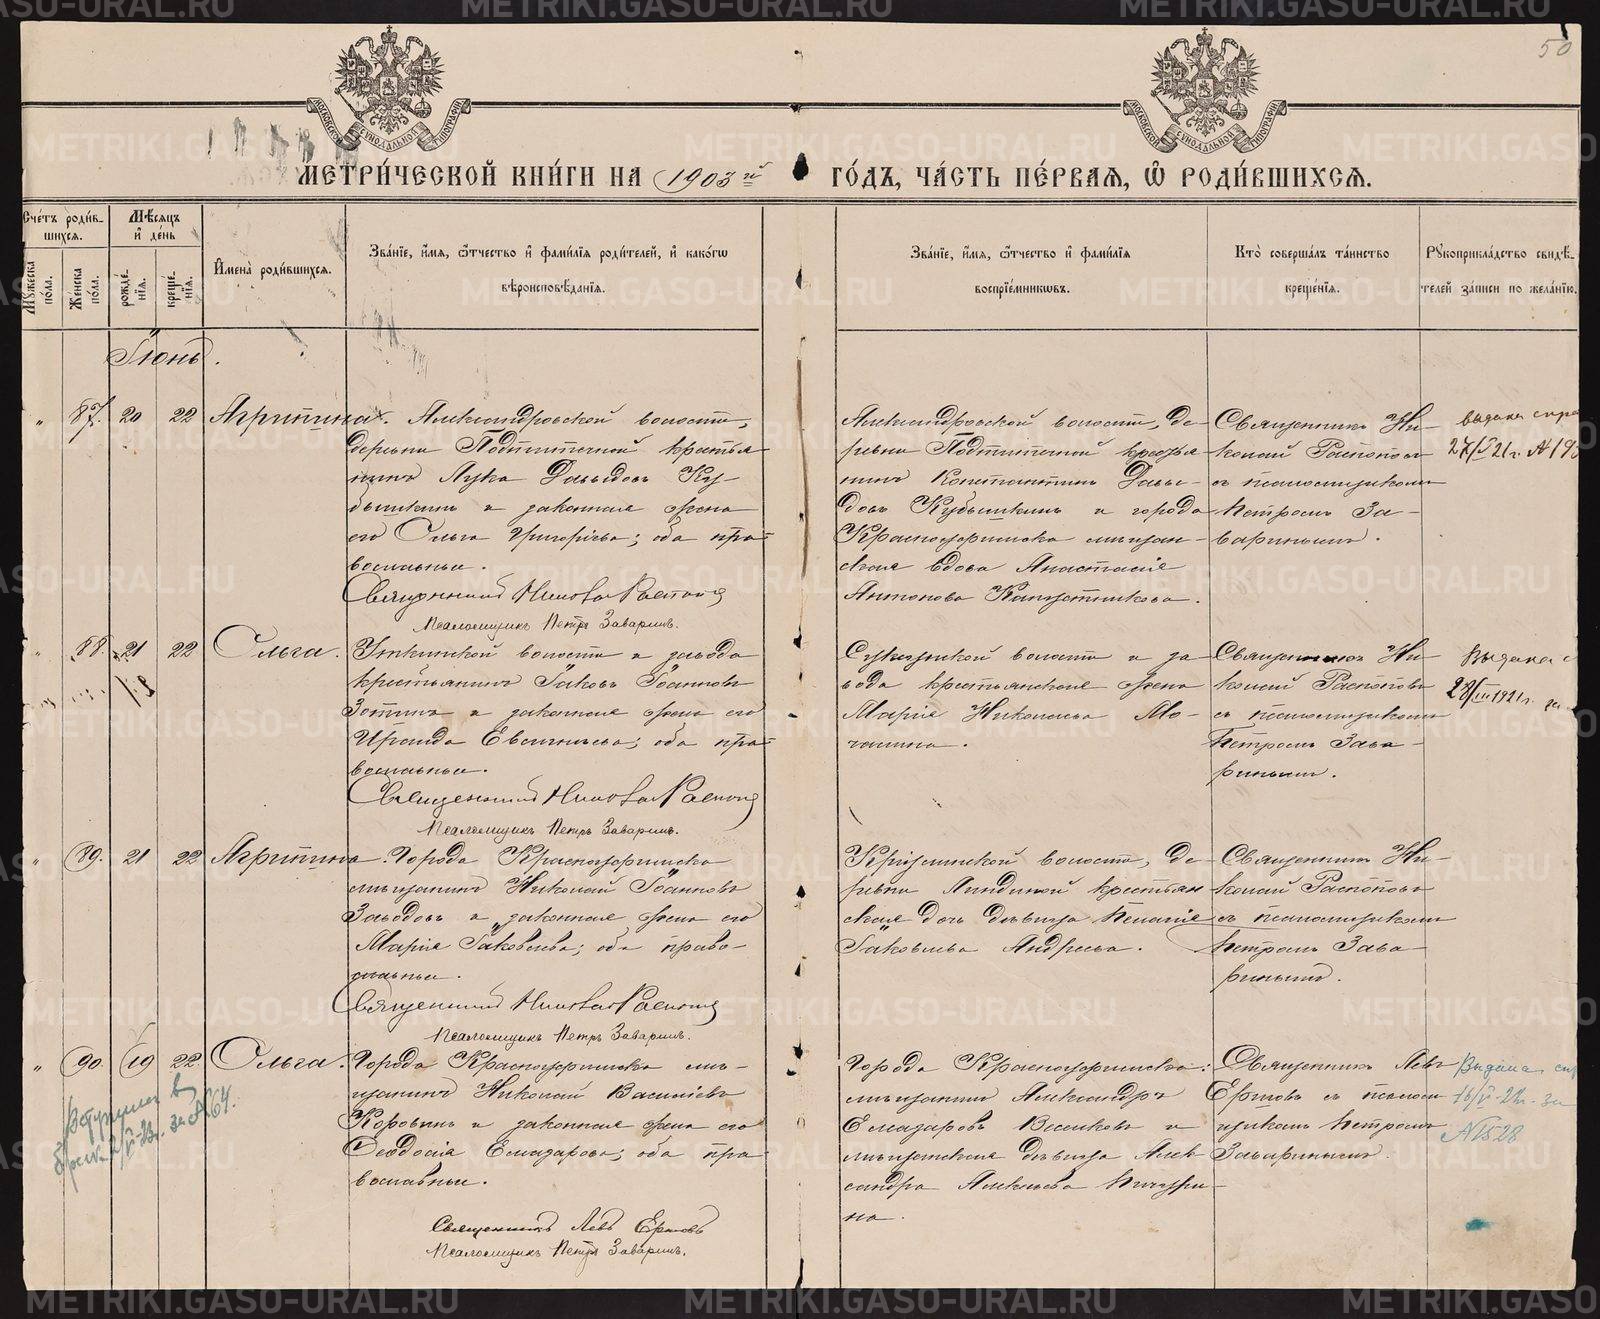 50
МОСКОВСКОЙ СѴНОДАЛЬНОЙ ТИПОГРАФІИ
МОСКОВСКОЙ СѴНОДАЛЬНОЙ ТИПОГРАФІИ
МЕТРИ́ЧЕСКОЙ КНИ́ГИ НА 1903й ГО́ДЪ, ЧА́СТЬ ПЕ́РВАЯ, Ѡ РОДИ́ВШИХСЯ.
Сче́тъ роди́в-
шихся.
Мꙋ́жеска по́ла.
Же́нска по́ла.
Мѣ́сяцъ
и҆ де́нь
рожде́-
нїя.
креще́-
нїя.
И҆мена̀ роди́вшихся.
Зва́нїе, и҆́мя, ѻ҆́тчество и҆ фами́лїя роди́телей, и҆ како́гѡ
вѣроисповѣ́данїя.
Зва́нїе, и҆́мя, ѻ҆́тчество и҆ фами́лїя
воспрїе́мникѡвъ.
Кто̀ соверша́лъ та́инство
креще́нїя.
Рꙋкоприкла́дство свидѣ́-
телей за́писи по жела́нїю.
Іюнь.
" 87. 20 22 Агриппина.
Александровской волости,
деревни Подтипечной крестья
нинъ Лука Давыдовъ Ку-
бышкинъ и законная жена
его Ольга Григорьева; оба пра-
вославные.
Священникъ Николай Распоповъ
Псаломщикъ Петръ Заваринъ.
Александровской волости, де-
ревни Подтипечной крестья
нинъ Константинъ Давы-
довъ Кубышкинъ и города
Красноуфимска мѣщан-
ская вдова Анастасія
Антонова Капустникова.
Священникъ Ни-
колай Распоповъ
съ псаломщикомъ
Петромъ За-
варинымъ.
выдана спра
27/V 21г. №
" 88. 21 22 Ольга.
Уткинской волости и завода
крестьянинъ Іаковъ Іоанновъ
Зотинъ и законная жена его
Ираида Евгеньева; оба пра-
вославные.
Священникъ Николай Распоповъ
Псаломщикъ Петръ Заваринъ.
Суксунской волости и за
вода крестьянская жена
Марія Николаева Мо-
чалина.
Священникъ Ни-
колай Распоповъ
съ псаломщикомъ
Петромъ Зава-
ринымъ.
Выдана с
28/III 1921г.
" 89. 21 22 Агриппина.
Города Красноуфимска
мѣщанинъ Николай Іоанновъ
Заводовъ и законная жена его
Марія Іаковлева; оба право-
славные.
Священникъ Николай Распоповъ
Псаломщикъ Петръ Заваринъ.
волости, де-
ревни крестьян
ская дочь дѣвица Пелагія
Іаковлева Андреева.
Священникъ Ни-
колай Распоповъ
съ псаломщикомъ
Петромъ Зава-
ринымъ.
" 90. 19 22 Ольга.
Города Красноуфимска мѣ-
щанинъ Николай Васильевъ
Коровинъ и законная жена его
Ѳеодосія Елеазарова; оба пра
вославные.
Священникъ Левъ Ершовъ
Псаломщикъ Петръ Заваринъ.
Города Красноуфимска:
мѣщанинъ Александръ
Елеазаровъ Веселковъ и
мѣщанская дѣвица Алек
сандра Алексѣева Пичуги-
на.
Священникъ Левъ
Ершовъ съ псалом
щикомъ Петромъ
Заваринымъ.
Выдана спр
16/V-2 г. за
№1528
Вступила в
брак 2/VI-23г. за №64.